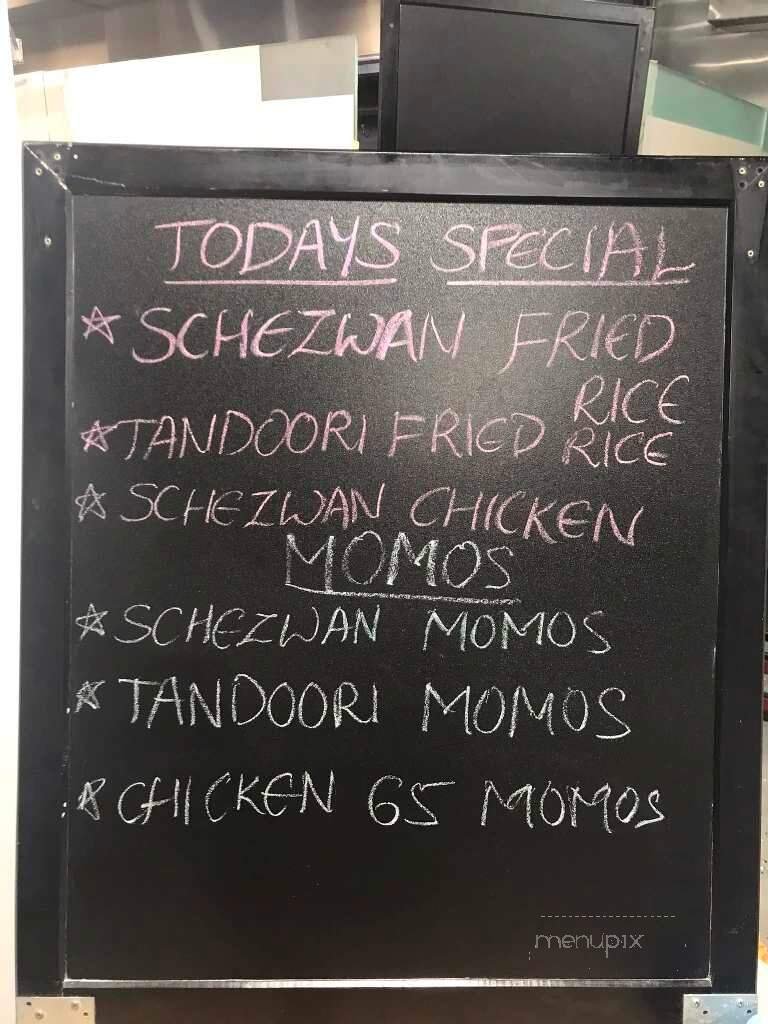 TODAYS SPECIAL
☆ SCHEZWAN FRIED
RICE
☆ TANDOORI FRIED RICE
☆ SCHEZWAN CHICKEN
MOMOS
☆ SCHEZWAN MOMOS
☆ TANDOORI MOMOS
☆ CHICKEN 65 MOMOS
menupix